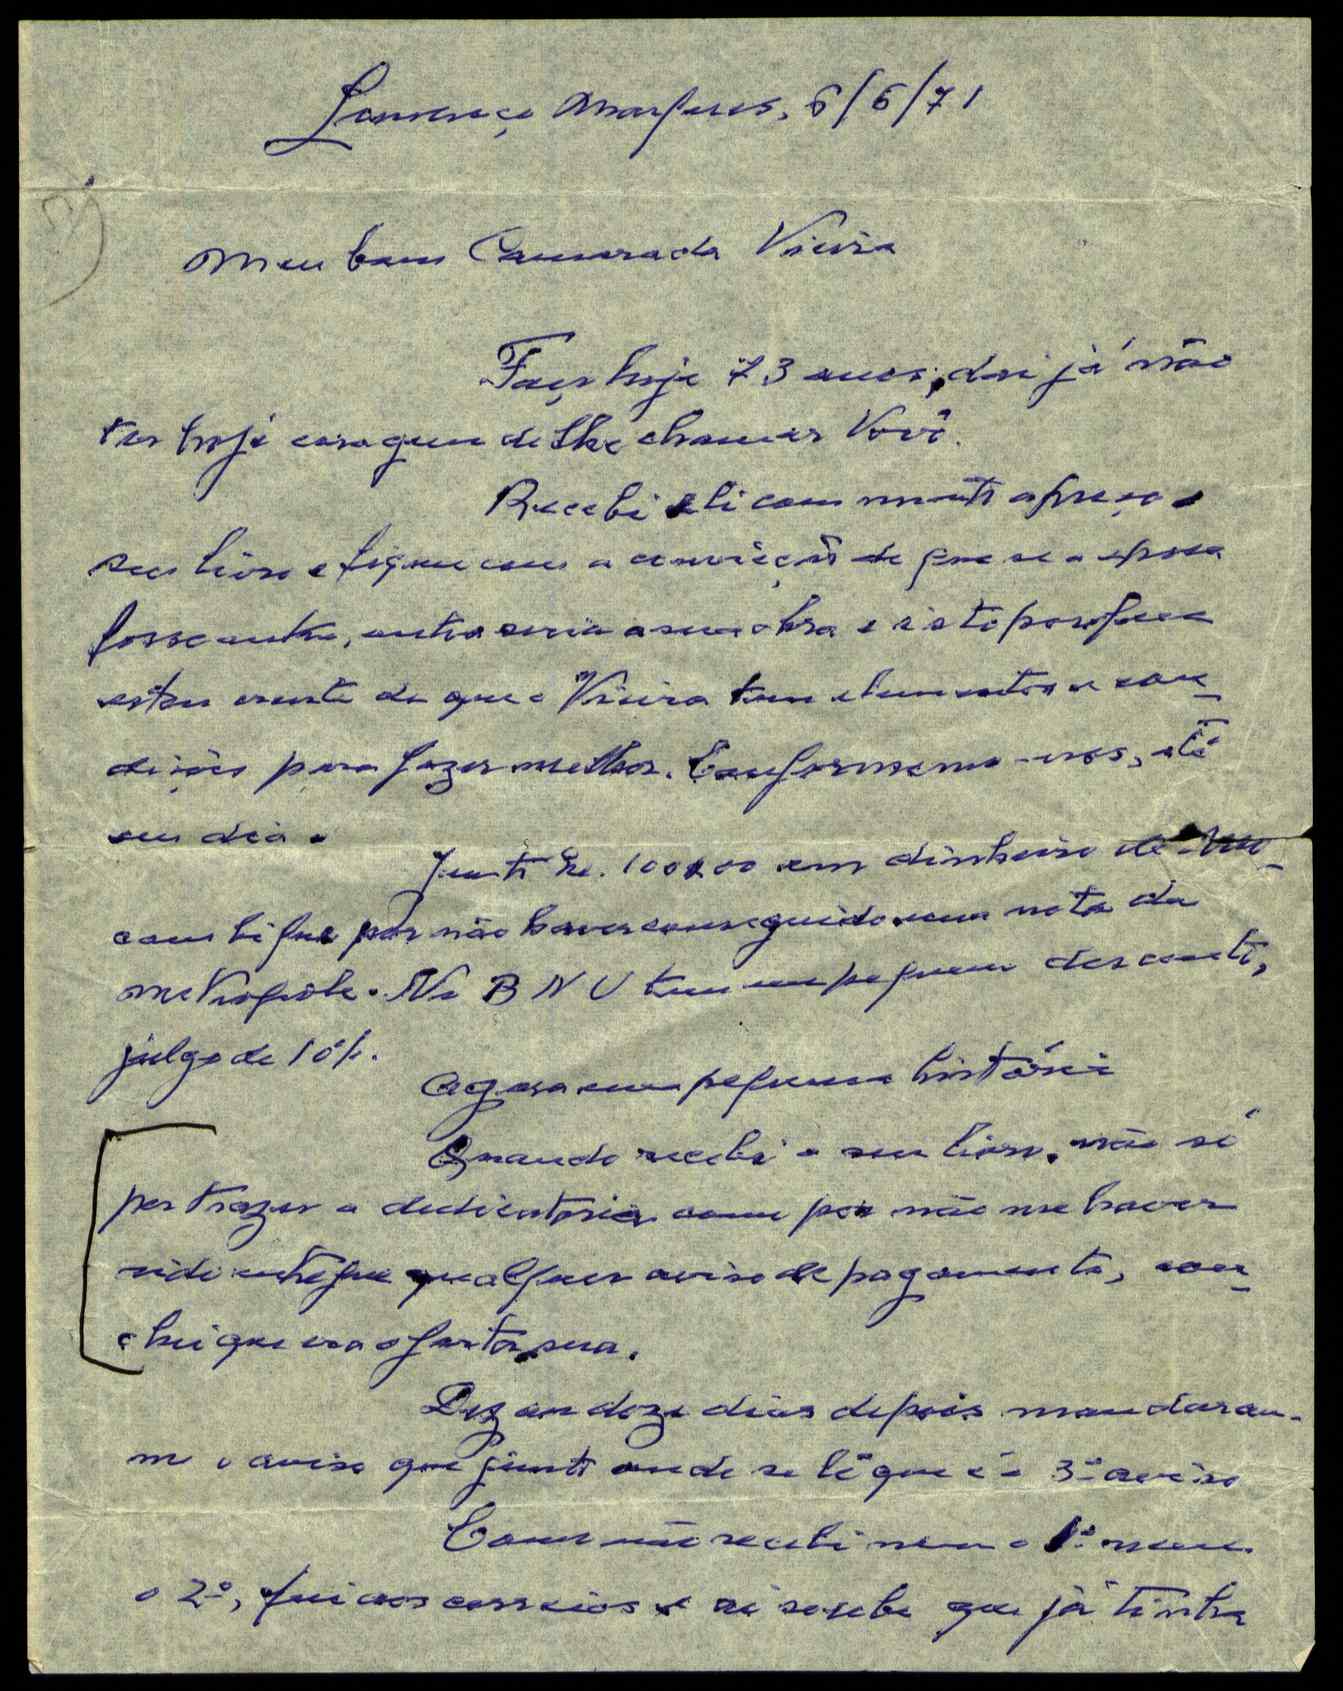 Lourenço Marques, 6/6/71
Meu bom Camarada Vieira
Faço hoje 73 anos, daí já não
ter hoje coragem de lhe chamar Vovô.
Recebi e li com muito apreço o
seu livro e fiquei com a convicção de que se a época
fosse outra, outra seria a sua obra e isto porque
estou crente de que o Vieira tem elementos e con-
dições para fazer melhor. Conformemo-nos, até
um dia.
Junto Esc. 100$00 em dinheiro de Mo-
çambique por não haver conseguido uma nota da
metrópole. No BNU tem um pequeno desconto,
julgo de 10%.
Agora uma pequena história
Quando recebi o seu livro, não só
por trazer a dedicatória como por não me haver
sido entregue qualquer aviso de pagamento, con-
clui que era oferta sua.
Dez ou doze dias depois mandaram-
me o aviso que junto onde se lê que é o 3º aviso
Como não recebi nem o 1º nem
o 2º, fui aos correios e aí soube que já tinha